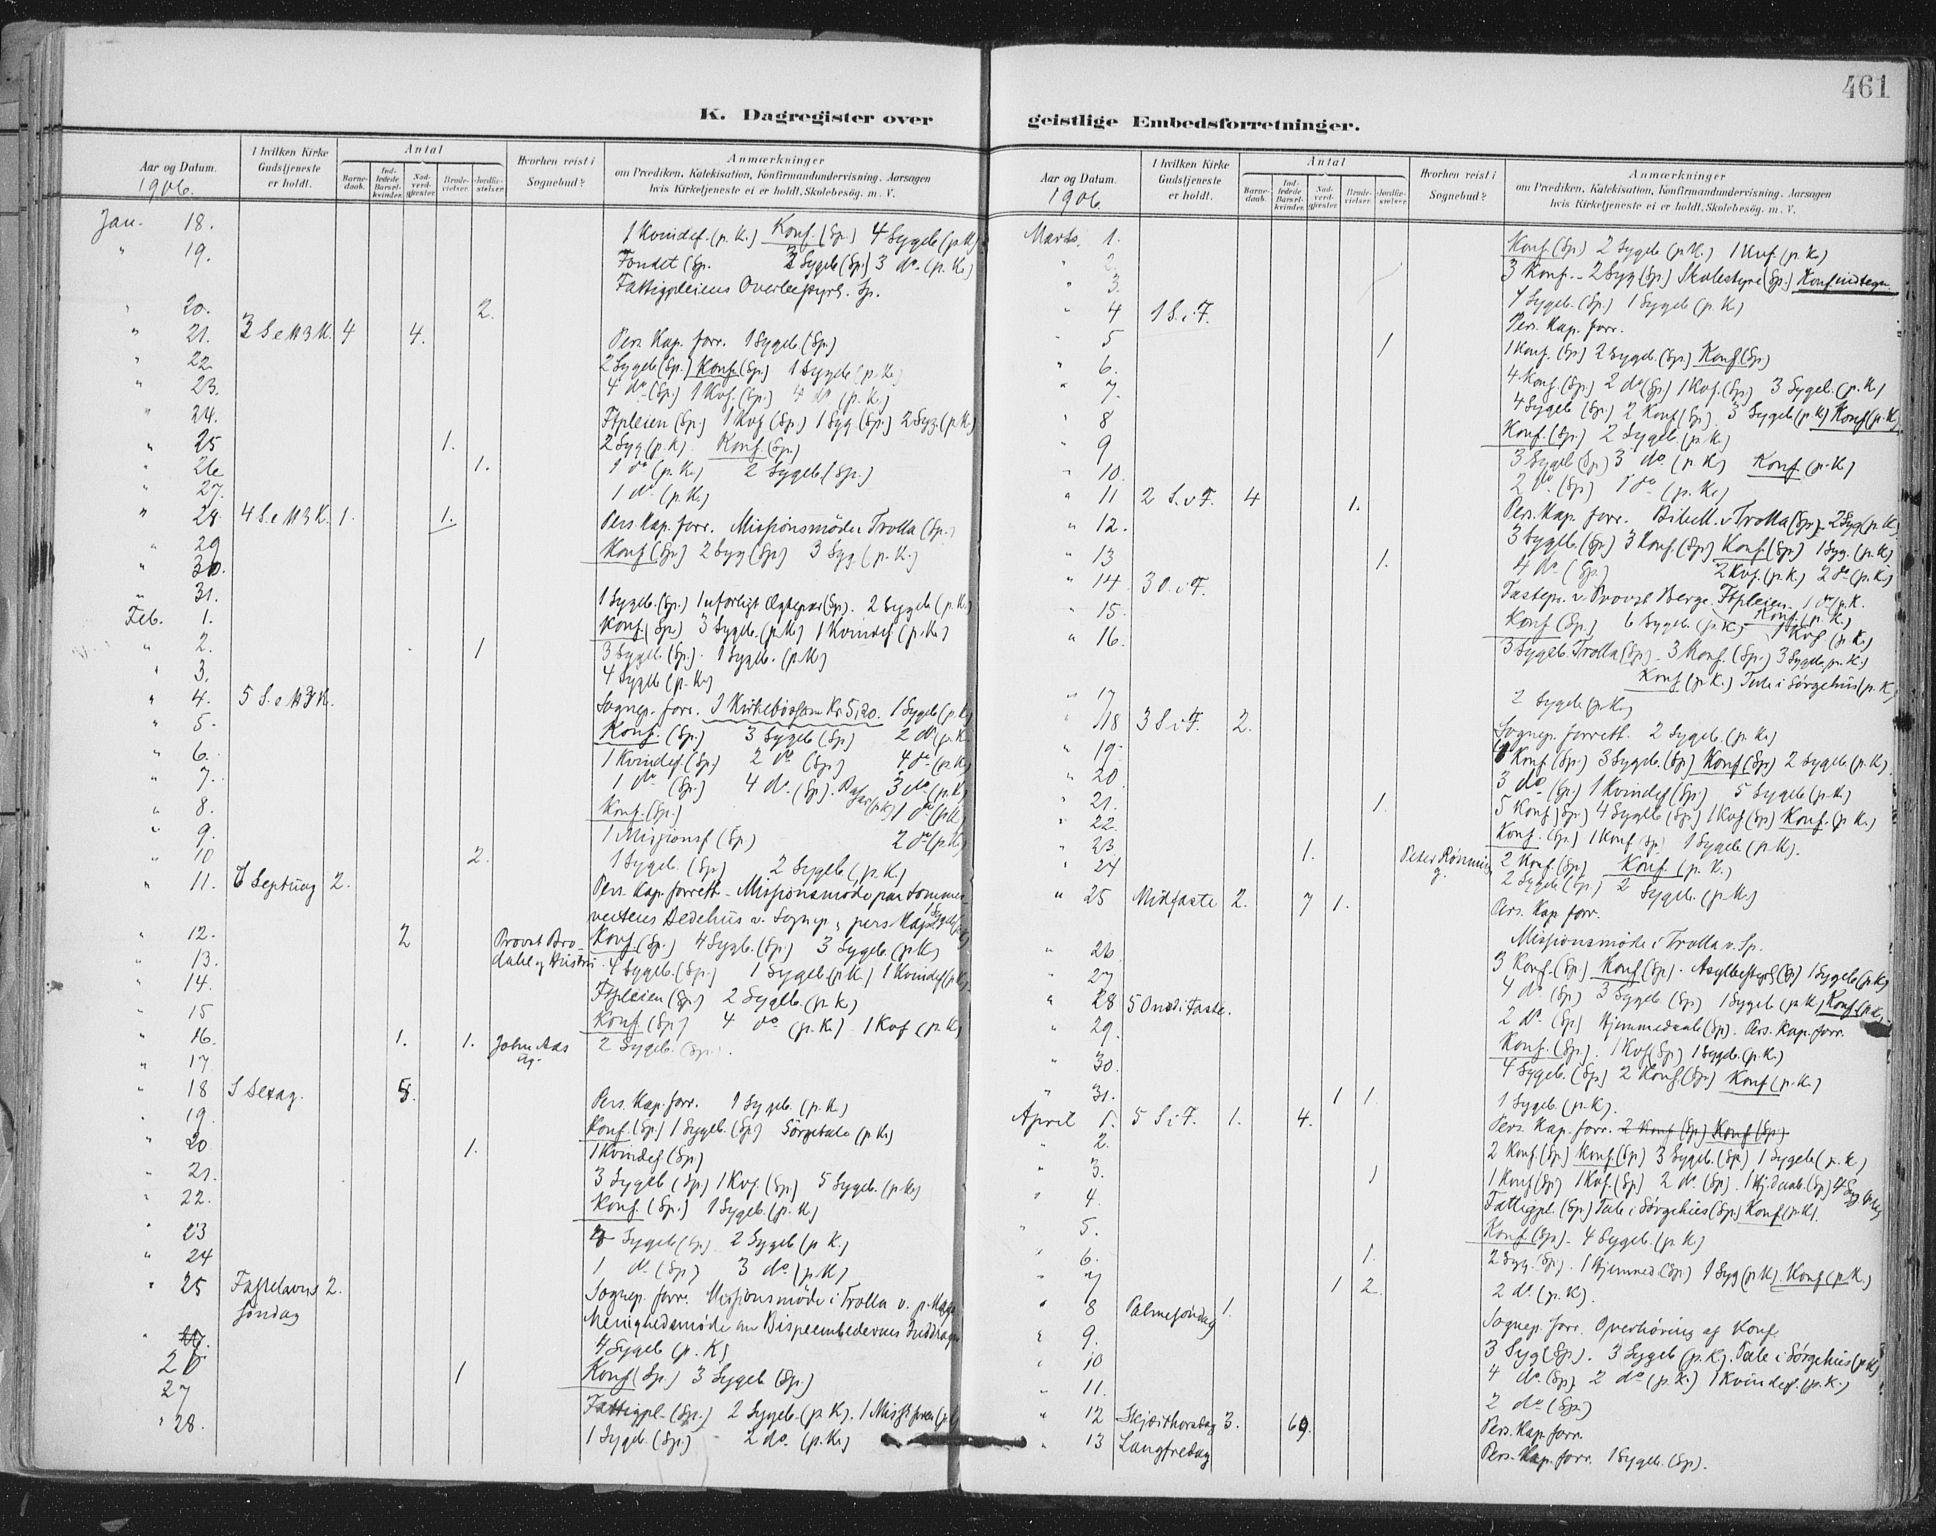 461
K. Dagregister over
geistlige Embedsforretninger.
Aar og Datum.
I hvilken Kirke Gudstjeneste er holdt.
Antal
Barnedaab.
Indledede Barselkvinder.
Nadverdgjæster.
Brudevielser.
Jordfæstelser.
Hvorhen reist i Sognebud?
Anmærkninger
om Prædiken, Katekisation, Konfirmandundervisning, Aarsagen
hvis Kirketjeneste ei er holdt, Skolebesög. m. V.
1906.
Jan. 18. 1 Kvindef. (p. K.) Konf. (Sp.) 4 Sygeb (p. K)
" 19. Fondet (Sp. 2 Sygeb (Sp.) 3 do. (p. K.)
Fattigpleiens Overbestyrb. Sp.
" 20. 2.
" 21. 3 S e H 3 K. 4 4. Pers. Kap. forr. 1 Sygeb (Sp.)
" 22. 2 Sygeb (Sp.) Konf. (Sp.) 1 Sygeb (p. K.)
" 23. 4 do (Sp.) 1 Kvf. (Sp.) 4 do (p. K.)
" 24. Ftpleien (Sp.) 1 Kvf (Sp.) 1 Syg (Sp.) 2 Syg. (p. K.)
" 25 1. 2 Syg (p. K) Konf. (Sp.)
" 26 1. 1 do (p. K.) 2 Sygeb (Sp.)
" 27. 1 do (p. K.)
" 28. 4 S e H 3 K. 1. 1. Pers. Kap. forr. Missionsmöde i Trolla (Sp.)
" 29 Konf (Sp.) 2 Syg (Sp) 3 Syg. (p. K.)
" 30.
" 31. 1 Sygeb. (Sp.) 1 uforligt Ægtepar (Sp). 2 Sygeb (p. K.)
Feb. 1. Konf. (Sp.) 3 Sygeb. (p. K) 1 Kvindef (p. K.)
" 2. 1 3 Sygeb (Sp.). 1 Sygeb. (p. K)
" 3. 4 Sygeb (p. K)
" 4. 5 S. e H 3 K. Sognep. forr. I Kirkebössen Kr 5,20. 1 Sygeb (p. K)
" 5. Konf. (Sp.) 3 Sygeb (Sp) 2 do (p. K.
" 6. 1 Kvindef. (Sp.) 2 do (Sp.) 4 do (p. K)
" 7. 1 do (Sp.) 4 do. (Sp). 3 do (p. K)
" 8. Konf. (Sp.) 1 do (p. K)
" 9. 1 Missionsf (Sp) 2 do (p. K.)
" 10 2. 1 Sygeb. (Sp) 2 Sygeb (p. K.)
" 11. Septuag 2. Pers. Kap. forrett. Missionsmöde paa
Bedehus v. Sognep. pers. Kap.
" 12. 2 Provst Bro- Konf. (Sp.) 4 Sygb. (Sp.) 3 Sygeb. (p. K)
" 13. dahl og Hustru. 4 Sygeb. (Sp.) 1 Sygeb (p. K.) 1 Kvindef (p. K).
" 14. Ftpleien (Sp.) 2 Sygeb. (p. K)
" 15 Konf. (Sp.) 4 do (p. K.) 1 Kvf (p. K)
" 16. 1. 1. John Aas 2 Sygeb. (Sp.).
" 17
" 18 S Sexag. 5. Pers. Kap. forr. 1 Sygeb. (p. K)
" 19. Konf (Sp.) 1 Sygeb. (Sp) Sörgetale (p. K)
" 20 1. 1 Kvindef (Sp)
" 21. 3 Sygeb (Sp.) 1 Kvf. (Sp) 5 Sygeb. (p. K)
" 22. Konf. (Sp.) 1 Sygeb. (p. K)
" 23 Sygeb (Sp). 2 Sygeb (p. K.)
" 24 1 do (Sp) 3 do (p. K)
" 25 Fastelavns 2. Sognep. forr. Missionsmöde i Trolla v. p. Kap.
söndag Menighedsmöde om Bispeembedernes Inddragn
4 Sygeb (p. K)
26 1 Konf (Sp.) 3 Sygeb (Sp.)
27 Fattigpl. (Sp.) 2 Sygeb. (p. K).
" 28. 1 Sygeb. (Sp.) 2 do. (p. K.)
Aar og Datum.
I hvilken Kirke Gudstjeneste er holdt.
Antal
Barnedaab.
Indledede Barselkvinder.
Nadverdgjæster.
Brudevielser.
Jordfæstelser.
Hvorhen reist i Sognebud?
Anmærkninger
om Prædiken, Katekisation, Konfirmandundervisning, Aarsagen
hvis Kirketjeneste ei er holdt, Skolebesög. m. V.
1906
Marts. 1. Konf. (Sp) 2 Sygeb (p. K.) 1 Kvf. (p. K.)
" 2. 3 Konf. - 2 Syg (Sp.) Skolestyre (Sp.) Konf indtegn.
" 3. 4 Sygeb. (Sp) 1 Sygeb (p. K)
" 4 1 S. i F. Pers. Kap. forr.
" 5 1 1 Konf. (Sp) 2 Sygeb. (Sp) Konf (Sp)
" 6. 4 Konf. (Sp) 2 do (Sp) 1 Kvf. (Sp) 3 Sygeb. (p. K)
" 7. 4 Sygeb (Sp.) 2 Konf (Sp). 3 Sygeb (p. K) Konf (p. K)
" 8 Konf. (Sp.) 2 Sygeb. (p. K)
" 9 3 Sygeb (Sp) 3 do. (p. K) Konf. (p. K)
" 10. 2 do. (Sp) 1 do (p. K.)
" 11 2 S. i F. 4 1. Pers. Kap. forr. Bibelt. i Trolla (Sp). 2 Syg (p. K)
" 12. 3 Sygeb. (Sp) 3 Konf. (Sp) Konf. (Sp) 1 Syg. (p. K)
" 13 1. 4 do (Sp.) 2 Kvf. (p. K.) 2 do (p. K.)
" 14 3 O. i F. Fastepr. v. Provst Berge. Ftpleien. 1 do p. K.
" 15. Konf (Sp.) 6 Sygeb. (p. K) Konf. (p. K) 1 Kvf (p. K)
" 16. 3 Sygeb. Trolla (Sp). 3 Konf. (Sp.) 3 Sygeb, p. K.)
Konf (p. K.) Tale i Sörgehus (p. K)
" 17 2 Sygeb (p. K.)
" 18 3 S i F. 2. Sognep. forrett. 2 Sygeb. (p. K)
" 19. Konf (Sp.) 3 Sygeb. (Sp) Konf (Sp) 2 Sygeb (p. K).
" 20 3 do. (Sp) 1 Kvindef (Sp.) 5 Sygeb (p. K)
" 21. 1. 5 Konf (Sp.) 4 Sygeb (Sp.) 1 Kvf (Sp) Konf. (p. K.)
" 22. Konf. (Sp.) 1 Konf (Sp) 1 Sygeb (p. K).
" 23 1. Peter Rönning 2 Konf. (Sp) Konf. (p. K.)
" 24 2 Sygeb (Sp.) 2 Sygeb. (p. K)
" 25 Midfaste 2. 7 1. Pers. Kap forr.
Missionsmöde i Trolla v. Sp.
" 26 3 Konf. (Sp.) Konf (Sp). Asylbestyr (Sp) 1 Sygeb (p. K)
" 27 4 do (Sp) 3 Sygeb (Sp) 1 Sygeb (p. K) Konf (p. K.)
" 28 5 Onsd i Faste. 2 do. (Sp) Hjemmedaab (Sp). Pers. Kap. forr.
" 29. Konf. (Sp.). 1 Kvf (Sp) 1 Sygeb. (p. K.)
" 30. 4 Sygeb. (Sp) 2 Konf (Sp) Konf (p. K.)
" 31. 1 1. 1 Sygeb. (p. K).
April 1. 5 S i F. 1. 4. Pers. Kap. forr. 2 Konf (Sp) Konf (Sp)
" 2. 2 Konf. (Sp) Konf. (Sp) 3 Sygeb. (Sp) 1 Sygeb (p. K)
" 3. 1 1 Konf (Sp) 1 Kvf. (Sp) 2 do. (Sp). 1 Hj. daab. (Sp) 4 Syg (p. K)
" 4. Fattigpl. (Sp.) Tale i Sörgehus (Sp.) Konf (p. K).
" 5. Konf (Sp). 4 Sygeb. (p. K)
" 6. 1. 2 Syg. (Sp). 1 Hjemmed (Sp) 1 Syg (p. K). Konf (p. K.)
" 7 1 2. 2 do. (p. K).
" 8 Palmesöndag 1. Sognep. forr. Overhöring af Konf.
" 9. 3 Syg (Sp). 3 Sygeb (p. K). Tale i Sörgehus (p. K)
" 10 4 do. (Sp) 2 do (p. K.) 1 Kvindef. (p. K.)
" 11. 2 do (Sp.)
" 12 Skjærthorsdag 3. 69. Pers. Kap. forr.
" 13 Langfredag Pers. Kap. forr. 1 Sygeb. (Sp).